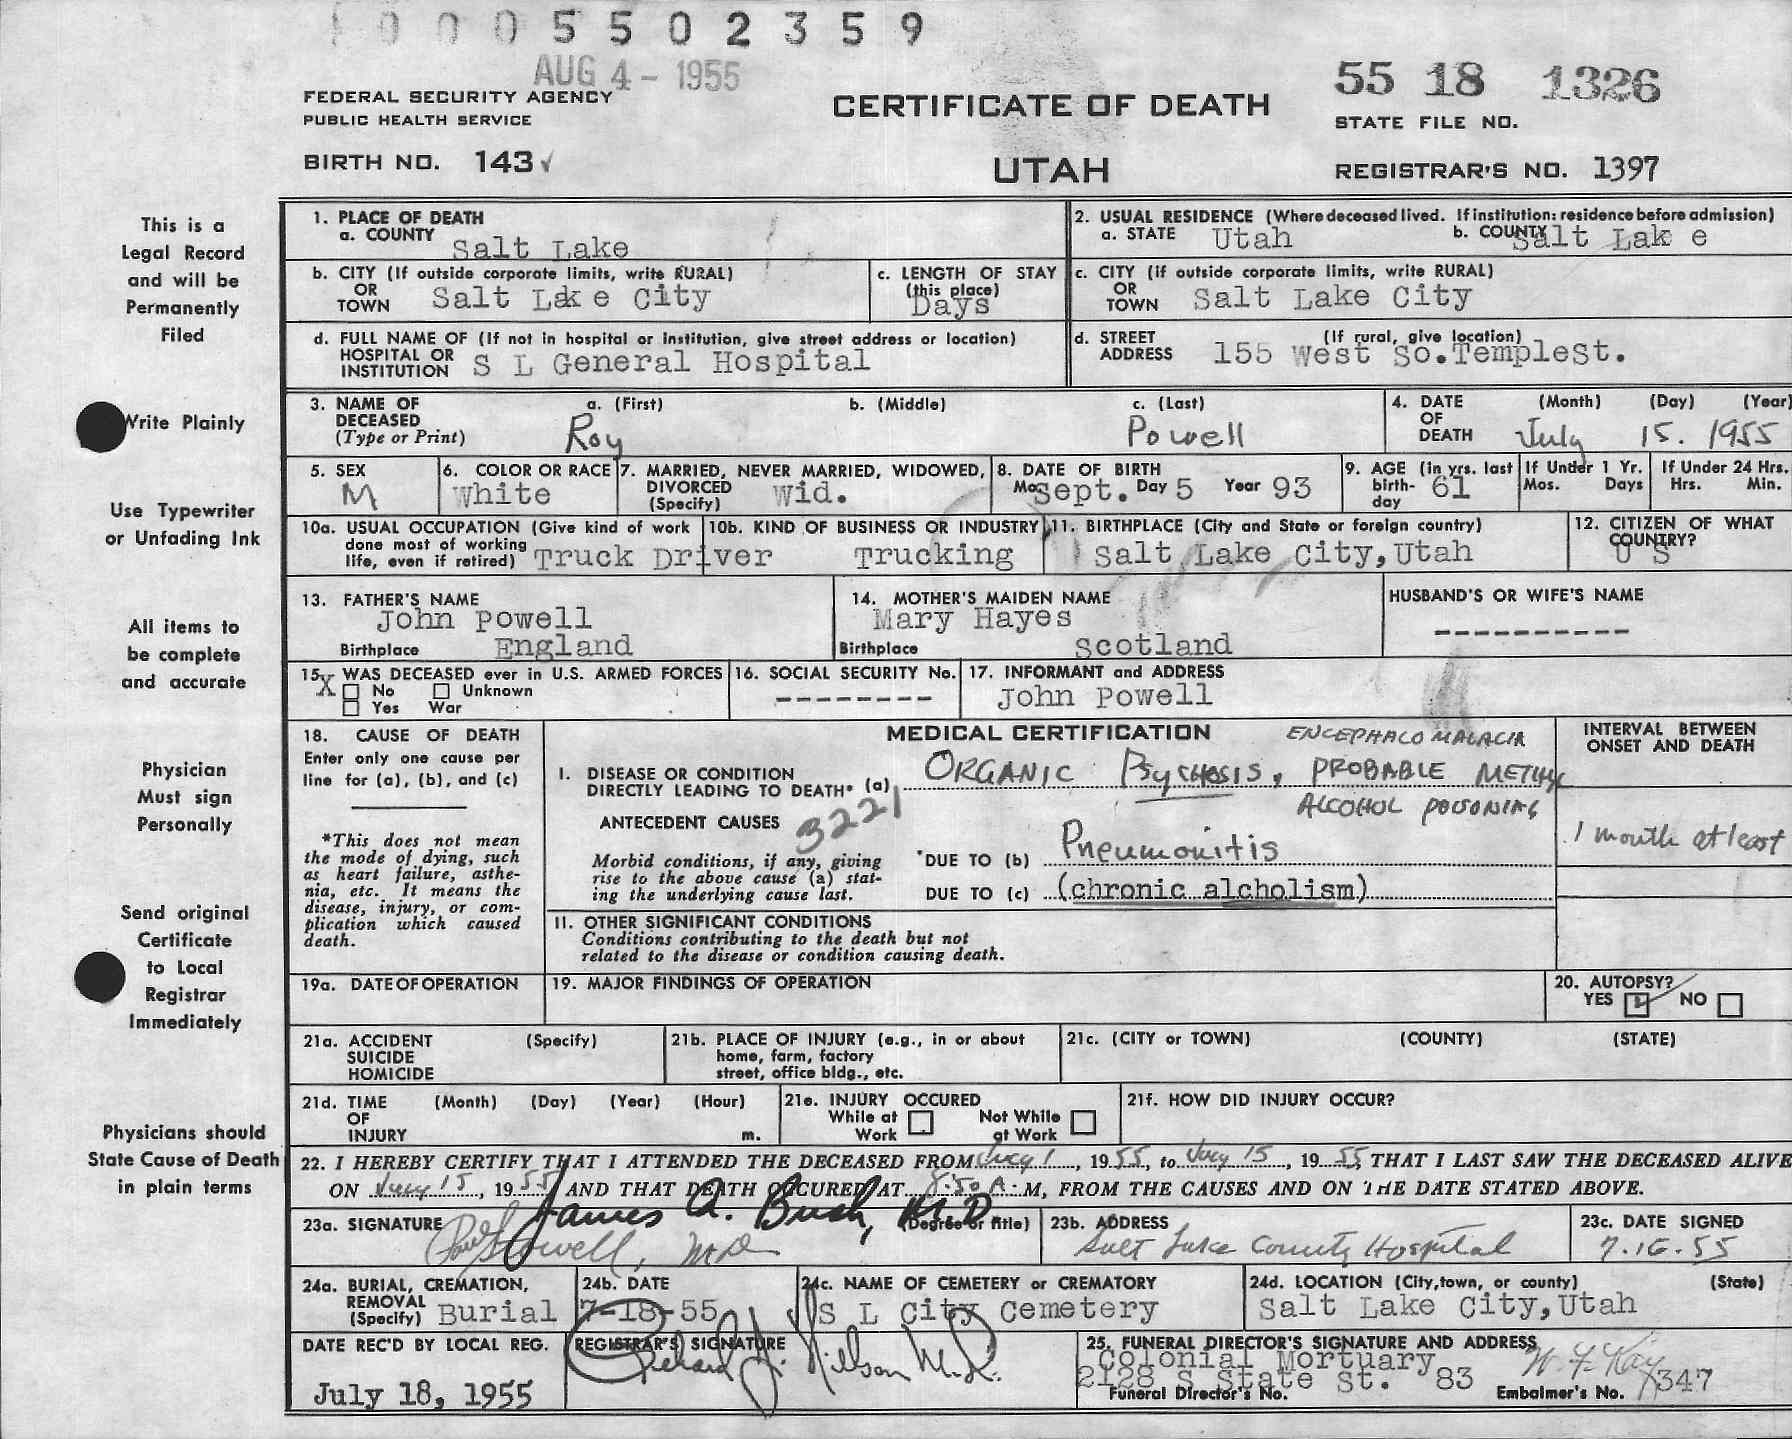 0 0 0 5 5 0 2 3 5 9
AUG 4 - 1955
FEDERAL SECURITY AGENCY
PUBLIC HEALTH SERVICE
BIRTH NO. 143
CERTIFICATE OF DEATH
UTAH
55 18 1326
STATE FILE NO.
REGISTRAR'S NO. 1397
This is a
Legal Record
and will be
Permanently
Filed
Write Plainly
Use Typewriter
or Unfading Ink
All items to
be complete
and accurate
Physician
Must sign
Personally
Send original
Certificate
to Local
Registrar
Immediately
Physicians should
State Cause of Death
in plain terms
1. PLACE OF DEATH
a. COUNTY Salt Lake
2. USUAL RESIDENCE (Where deceased lived. If institution: residence before admission)
a. STATE Utah b. COUNTY Salt Lak e
b. CITY (If outside corporate limits, write RURAL)
OR
TOWN Salt Lake City
c. LENGTH OF STAY
(this place)
Days
c. CITY (If outside corporate limits, write RURAL)
OR
TOWN Salt Lake City
d. FULL NAME OF (If not in hospital or institution, give street address or location)
HOSPITAL OR
INSTITUTION S L General Hospital
d. STREET (If rural, give location)
ADDRESS 155 West So.TempleSt.
3. NAME OF a. (First) b. (Middle) c. (Last)
DECEASED
(Type or Print) Roy Powell
4. DATE (Month) (Day) (Year)
OF
DEATH July 15. 1955
5. SEX
M
6. COLOR OR RACE
White
7. MARRIED, NEVER MARRIED, WIDOWED,
DIVORCED
(Specify) Wid.
8. DATE OF BIRTH
Mo. Sept. Day 5 Year 93
9. AGE (in yrs. last
birth-
day 61
If Under 1 Yr.
Mos. Days
If Under 24 Hrs.
Hrs. Min.
10a. USUAL OCCUPATION (Give kind of work
done most of working
life, even if retired) Truck Driver
10b. KIND OF BUSINESS OR INDUSTRY
Trucking
11. BIRTHPLACE (City and State or foreign country)
Salt Lake City,Utah
12. CITIZEN OF WHAT
COUNTRY?
U S
13. FATHER'S NAME
John Powell
Birthplace England
14. MOTHER'S MAIDEN NAME
Mary Hayes
Birthplace Scotland
HUSBAND'S OR WIFE'S NAME
----------
15. WAS DECEASED ever in U.S. ARMED FORCES
X No Unknown
Yes War
16. SOCIAL SECURITY No.
--------
17. INFORMANT and ADDRESS
John Powell
18. CAUSE OF DEATH
Enter only one cause per
line for (a), (b), and (c)
*This does not mean
the mode of dying, such
as heart failure, asthe-
nia, etc. It means the
disease, injury, or com-
plication which caused
death.
MEDICAL CERTIFICATION
ENCEPHALOMALACIA
I. DISEASE OR CONDITION
DIRECTLY LEADING TO DEATH* (a) ORGANIC PSYCHOSIS, PROBABLE METHYL
ALCOHOL POISONING
ANTECEDENT CAUSES
3221
Morbid conditions, if any, giving
rise to the above cause (a) stat-
ing the underlying cause last.
DUE TO (b) Pneumonitis
DUE TO (c) (chronic alcholism)
INTERVAL BETWEEN
ONSET AND DEATH
1 month at least
II. OTHER SIGNIFICANT CONDITIONS
Conditions contributing to the death but not
related to the disease or condition causing death.
19a. DATE OF OPERATION
19. MAJOR FINDINGS OF OPERATION
20. AUTOPSY?
YES NO
21a. ACCIDENT (Specify)
SUICIDE
HOMICIDE
21b. PLACE OF INJURY (e.g., in or about
home, farm, factory
street, office bldg., etc.
21c. (CITY or TOWN) (COUNTY) (STATE)
21d. TIME (Month) (Day) (Year) (Hour)
OF
INJURY m.
21e. INJURY OCCURED
While at Not While
Work at Work
21f. HOW DID INJURY OCCUR?
22. I HEREBY CERTIFY THAT I ATTENDED THE DECEASED FROM July 1, 1955, to July 15, 1955, THAT I LAST SAW THE DECEASED ALIVE
ON July 15, 1955 AND THAT DEATH OCCURED AT 8:50 A. M, FROM THE CAUSES AND ON THE DATE STATED ABOVE.
James A. Bush, M.D.
23a. SIGNATURE (Degree or title)
23b. ADDRESS
Salt Lake County Hospital
23c. DATE SIGNED
7.16.55
24a. BURIAL, CREMATION,
REMOVAL
(Specify) Burial
24b. DATE
7-18-55
24c. NAME OF CEMETERY or CREMATORY
S L City Cemetery
24d. LOCATION (City,town, or county) (State)
Salt Lake City,Utah
DATE REC'D BY LOCAL REG.
July 18, 1955
REGISTRAR'S SIGNATURE
25. FUNERAL DIRECTOR'S SIGNATURE AND ADDRESS
Colonial Mortuary W. F. Kay
2128 S State St. 83 1347
Funeral Director's No. Embalmer's No.